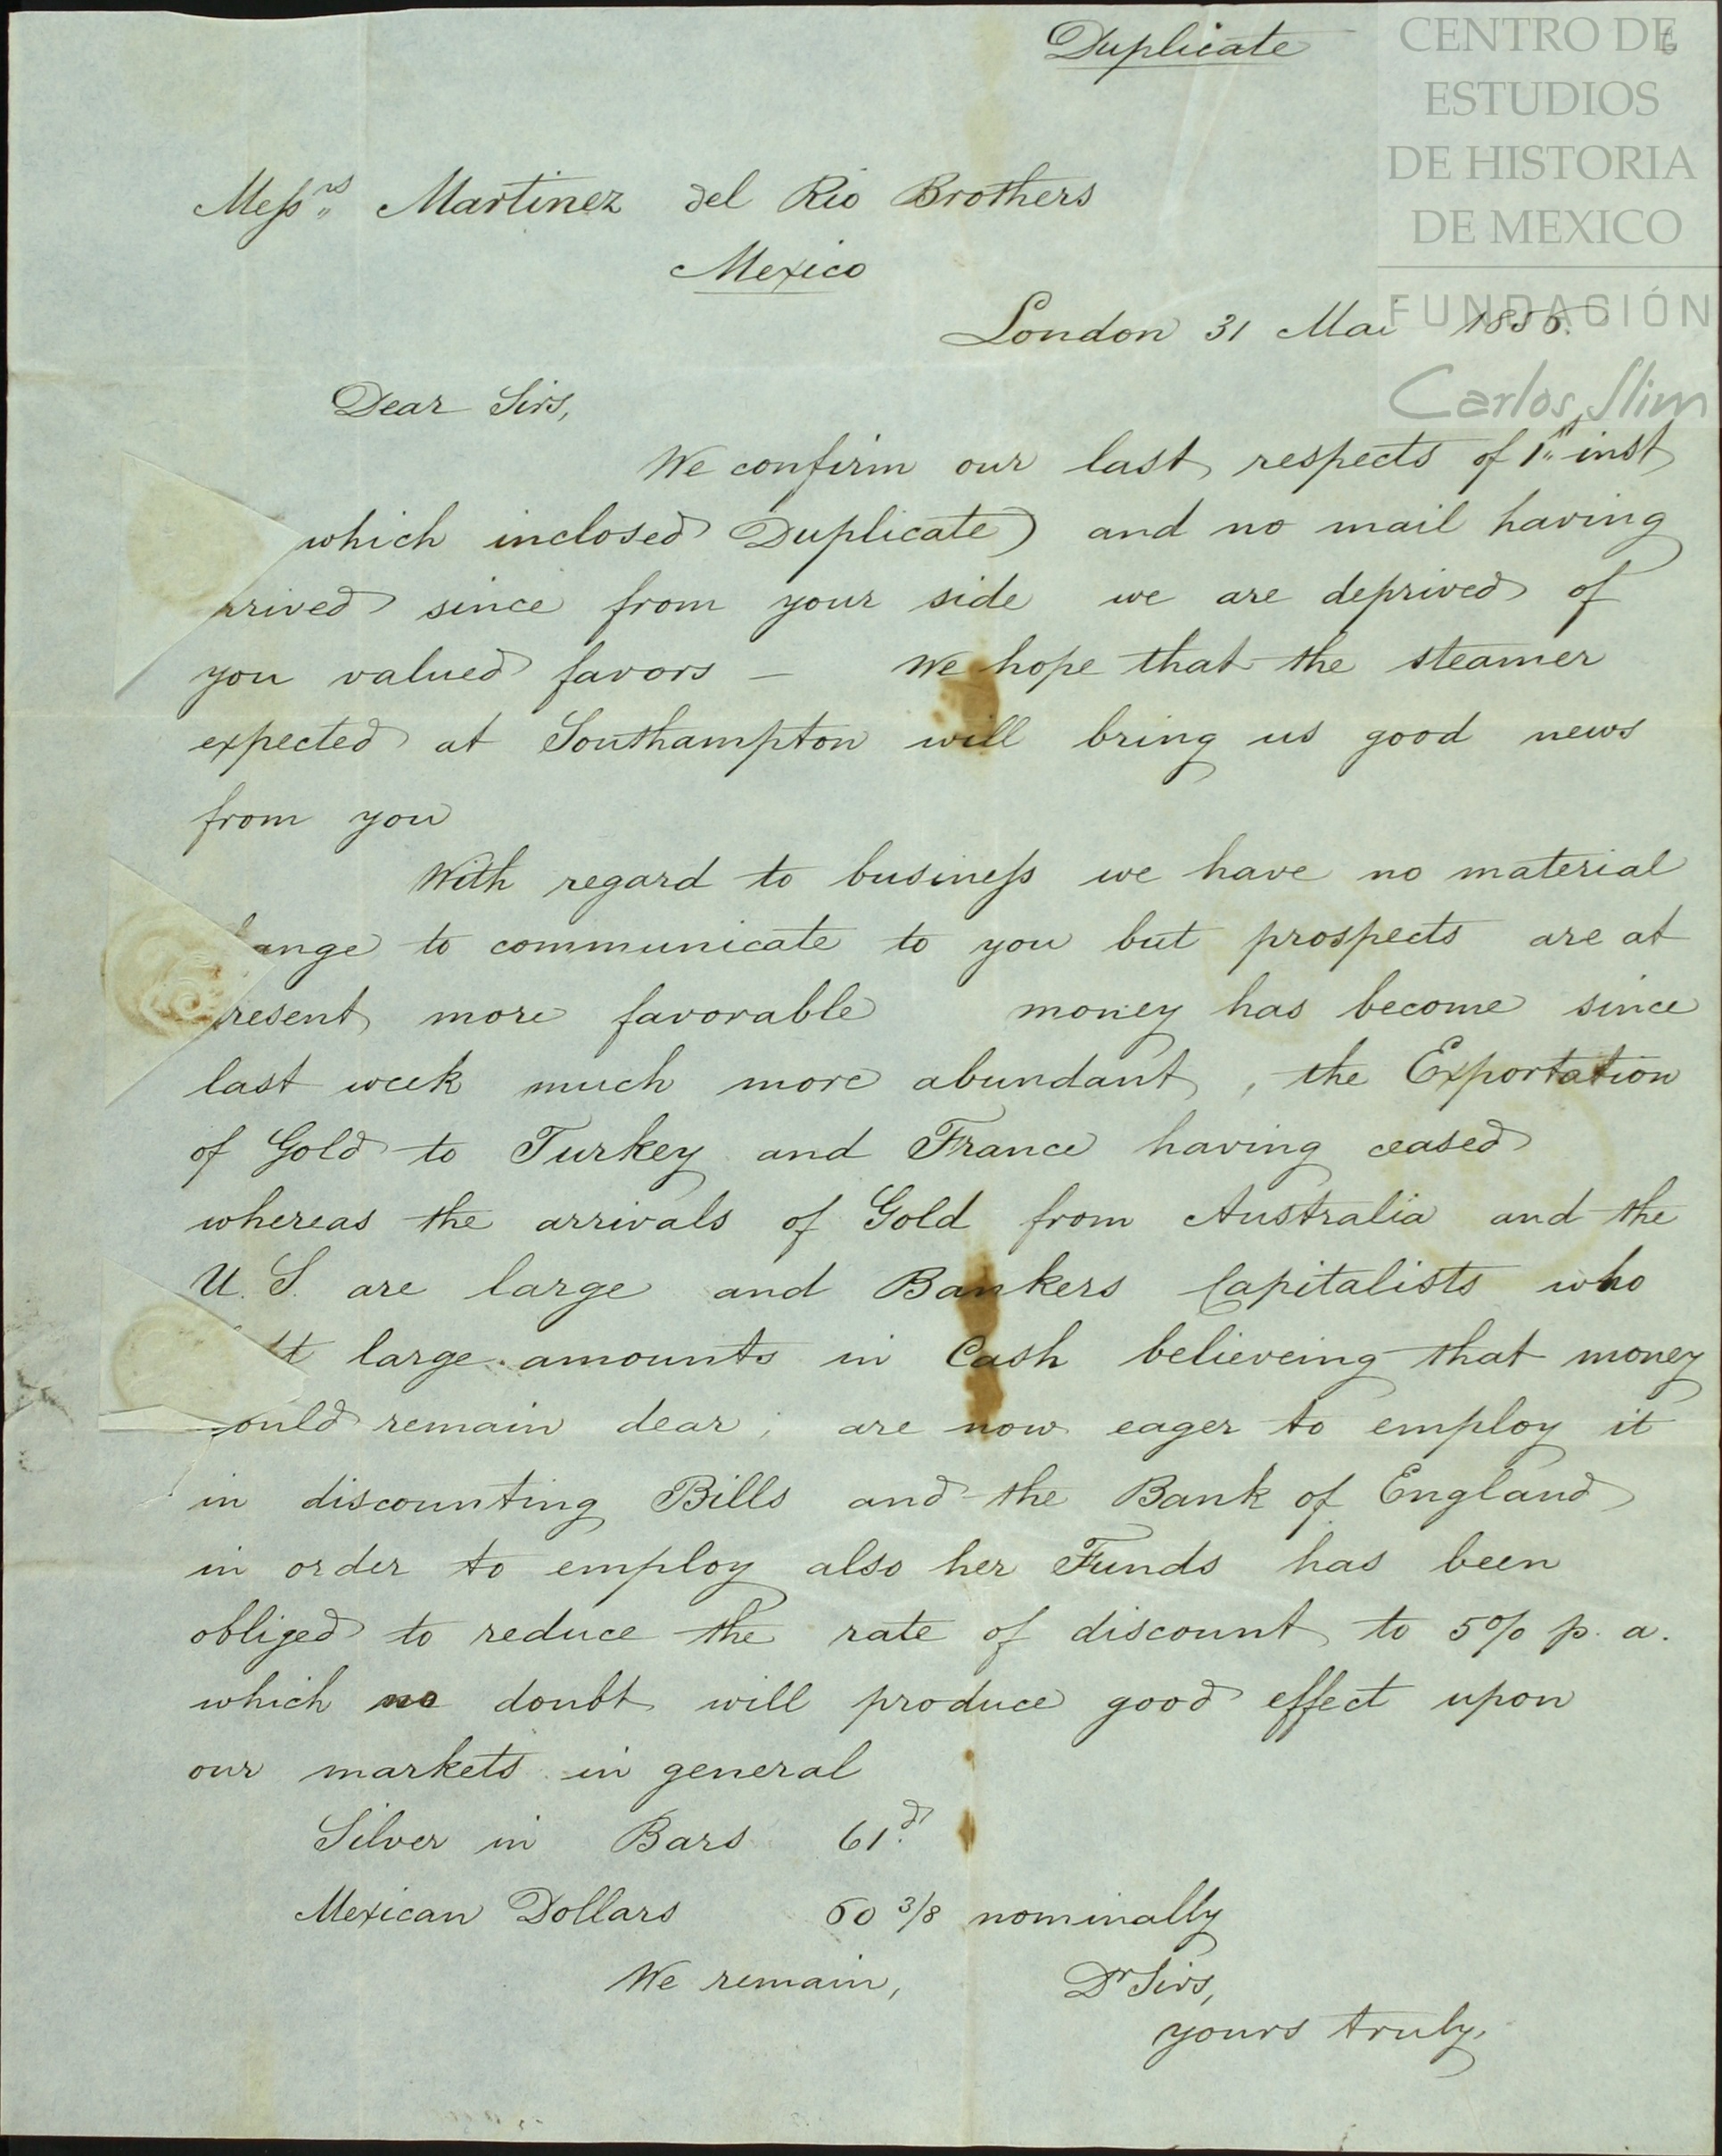 Duplicate
CENTRO DE
ESTUDIOS
DE HISTORIA
DE MEXICO
FUNDACIÓN
Carlos Slim
Messrs Martinez del Rio Brothers
Mexico
London 31 Mai 1856.
Dear Sirs,
We confirm our last respects of 1st inst
which inclosed Duplicate) and no mail having
rrived since from your side we are deprived of
you valued favors — We hope that the steamer
expected at Southampton will bring us good news
from you
With regard to business we have no material
ange to communicate to you but prospects are at
resent more favorable money has become since
last week much more abundant, the Exportation
of Gold to Turkey and France having ceased
whereas the arrivals of Gold from Australia and the
U. S. are large and Bankers Capitalists who
large amounts in Cash believeing that money
ould remain dear, are now eager to employ it
in discounting Bills and the Bank of England
in order to employ also her Funds has been
obliged to reduce the rate of discount to 5% p. a.
which no doubt will produce good effect upon
our markets in general
Silver in Bars 61d.
Mexican Dollars 60 3/8 nominally
We remain, Dr Sirs,
yours truly,